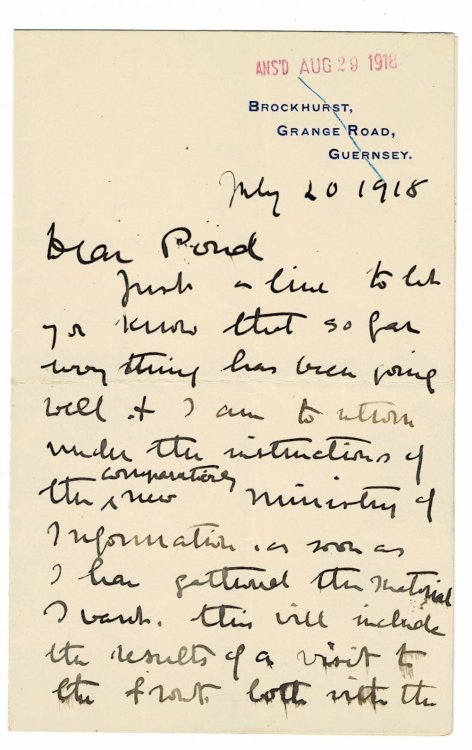 ANS'D AUG 29 1918
BROCKHURST,
GRANGE ROAD,
GUERNSEY.
July 20 1918
Dear Pond
Just a line to let
you know that so far
everything has been going
well & I am to return
under the instructions of
the comparatively new Ministry of
Information. as soon as
I have gathered the material
I want. This will include
the results of a visit to
the front both with the